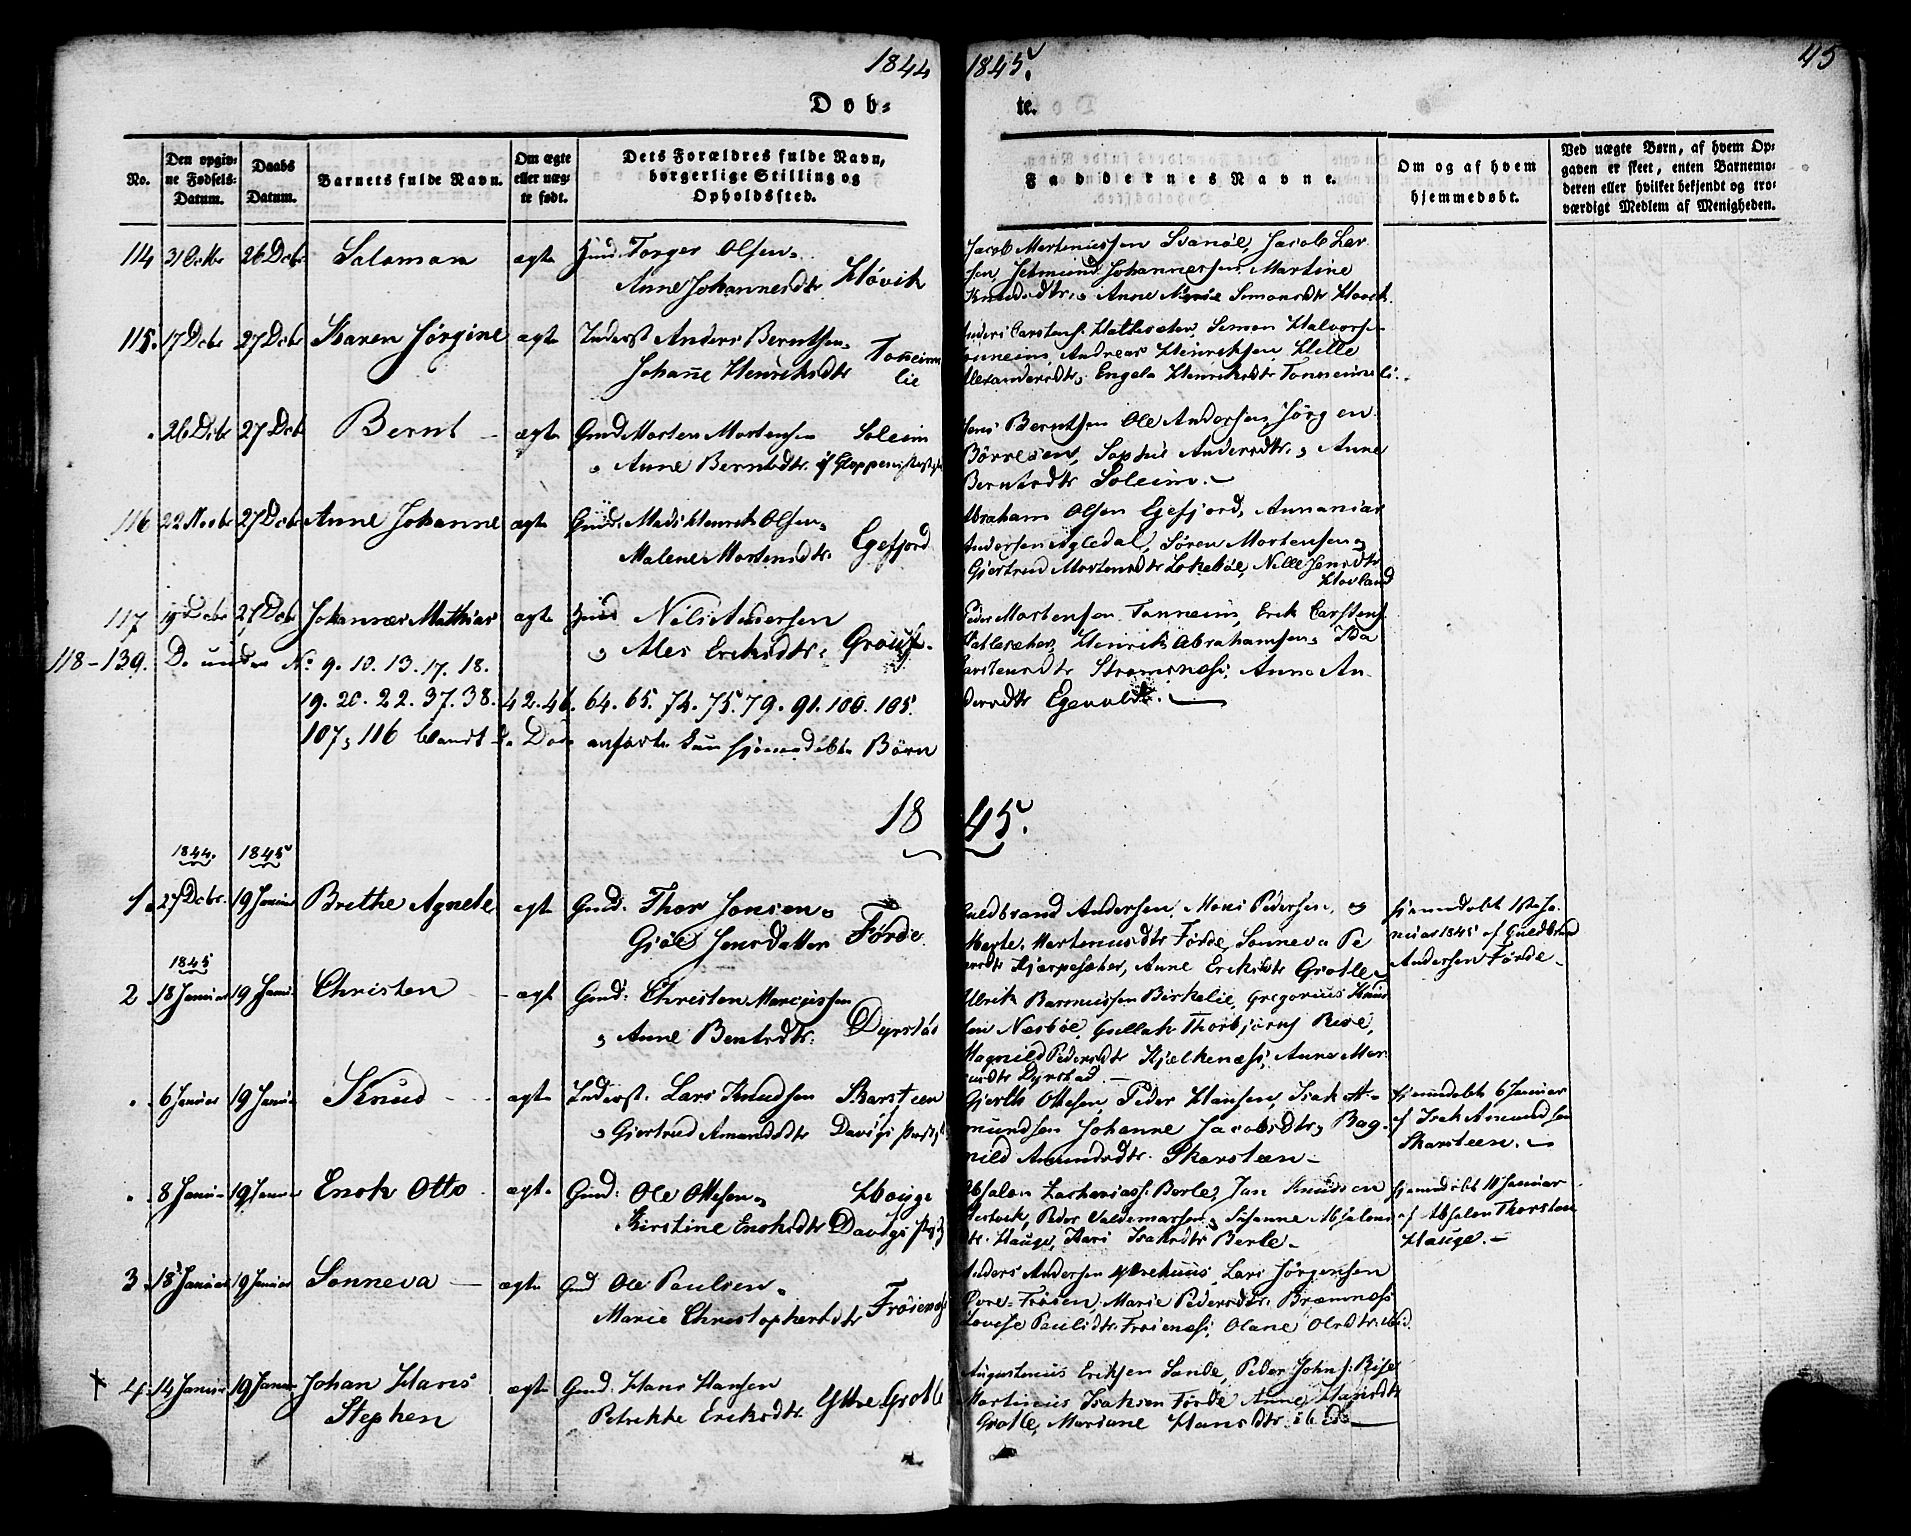 1844 1845. 45
Døb- te.
No.
Den opgiv-
ne Fødsels-
Datum.
Daabs
Datum.
Barnets fulde Navn.
Om ægte
eller uæg-
te født.
Dets Forældres fulde Navn,
borgerlige Stilling og
Opholdssted.
Faddernes Navne.
Om og af hvem
hjemmedøbt.
Ved uægte Børn, af hvem Op-
gaven er skeet, enten Barnemo-
deren eller hvilket bekjendt og tro-
værdigt Medlem af Menigheden.
114 31 Octbr 26 Dcbr Salamon ægte Huusmd. Torger Olsen
Anne Johannesdtr Hovik
Jacob Martinussen Svanøe, Jacob Lar-
sen, Johannessen, Martine
Knudsdtr, Anne Simonsdtr Hovik.
115. 17 Dcbr 27 Dcbr Karen Jørgine ægte Inderst Anders Berntsen
Johanne Henriksdtr Tonneim
lie
Anders Carstens. Hatlesæter, Simon Halvorse
Tonneim, Andreas Henriksen, Hille
Alexandersdtr, Engela Henriksdtr Tonneimli.
26 Dcbr 27 Dcbr Bernt ægte Gmd Morten Mortensen Soleim
Anne Berntsdtr. af Gloppens Præstegj
Jens Berntsen Ole Andersen, Jørgen
Børresen, Sophie Andersdtr, Anne
Berntsdtr Soleim.
116 22 Novbr 27 Dcbr Anne Johanne ægte Gmd. Mads Henrik Olsen
Malene Mortensdtr. Egefjord
Abraham Olsen Egefjord, Annanias
Andersen Agledal, Søren Mortensen
Gjertrud Mortensdtr Lokebøe, Nille Jensdtr
Hovland
117 19 Dcbr 27 Dcbr Johannes Mathias ægte Nils Andersen
Ales Eriksdtr.
Peder Mortensen Tonneim, Erik Carstens.
Hatlesæter, Henrik Abrahamsen, Ida
Carstensdtr Strømsnæs, Anna An-
dersdtr
118-139. Do under No 9. 10. 13. 17. 18.
19. 20. 22. 37. 38. 42. 46. 64. 65. 74. 75. 79. 91. 100. 105.
107, 116 blandt de Døde anførte kun hjemmedøbte Børn
1845.
1844. 1845
1. 27 Dcbr. 19 Januar Brethe Agnete ægte Gmd. Thor Jonsen
Gjøe Jensdatter Førde.
Guldbrand Andersen, Mons Pedersen, og
Marte Martinusdtr Førde, Sonneva Pe
dersdtr Hjarpesæter, Anne Eriksdtr Grotle
hjemmedøbt 1ste Ja-
nuar 1845 af Guldbrand
Andersen Førde
1845
2 18 Januar 19 Janu. Christen ægt Gmd. Christen Marcussen
Anne Bentsdtr. Dyrstad
Ulrik Rasmussen Birkelie, Gregorius Knud
sen Næsbøe, Gullak Thorbjørns. Rise,
Magnild Pedersdtr Hjelkenæs, Anne Mar
cusdtr Dyrstad
6 Januar 19 Janua Knud ægte Inderst. Lars Knudsen Skarsteen
Gjertrud Amundsdtr Davigs Præstgj
Gjerth Ottesen, Peder Hansen, Isak A-
mundsen Johanne Jacobsdtr, Rag-
nild Amundsdtr. Skarsteen
hjemmedøbt 6 Januar
af Isak Amundsen
Skarsteen.
8 Janua 19 Janua Enok Otto ægte Gmd: Ole Ottesen Houge
Kirstine Enoksdtr Davigs Præstgj
Absalon Zachariass. Berle, Jan Knudsen
Peder Valdemarsen, Susanne Absalons
dtr. Hauge, Kari Isaksdtr Berle
hjemmedøbt 10 Januar
af Absalon Thorsten
Hauge.
3 15 Januar 19 Januar Sonneva ægte Gmd Ole Paulsen
Marie Christophersdtr Frøienæs
Anders Andersen Myrehuus, Lars Jørgensen
Øvre-Frøien, Marie Pedersdtr. Bremnæs
Lovise Paulsdtr. Frøienæs, Olane Olsdtr. ibid.
4. 14 Januar 19 Januar Johan Hans
Stephen ægte Gmd. Hans Hansen
Petrikke Eriksdtr. Yttre Grotle
Augustinus Eriksen Sande, Peder Johns. Rise
Martinus Isaksen Førde Anne Hansdtr
Grotle, Mariane Hansdtr ibid